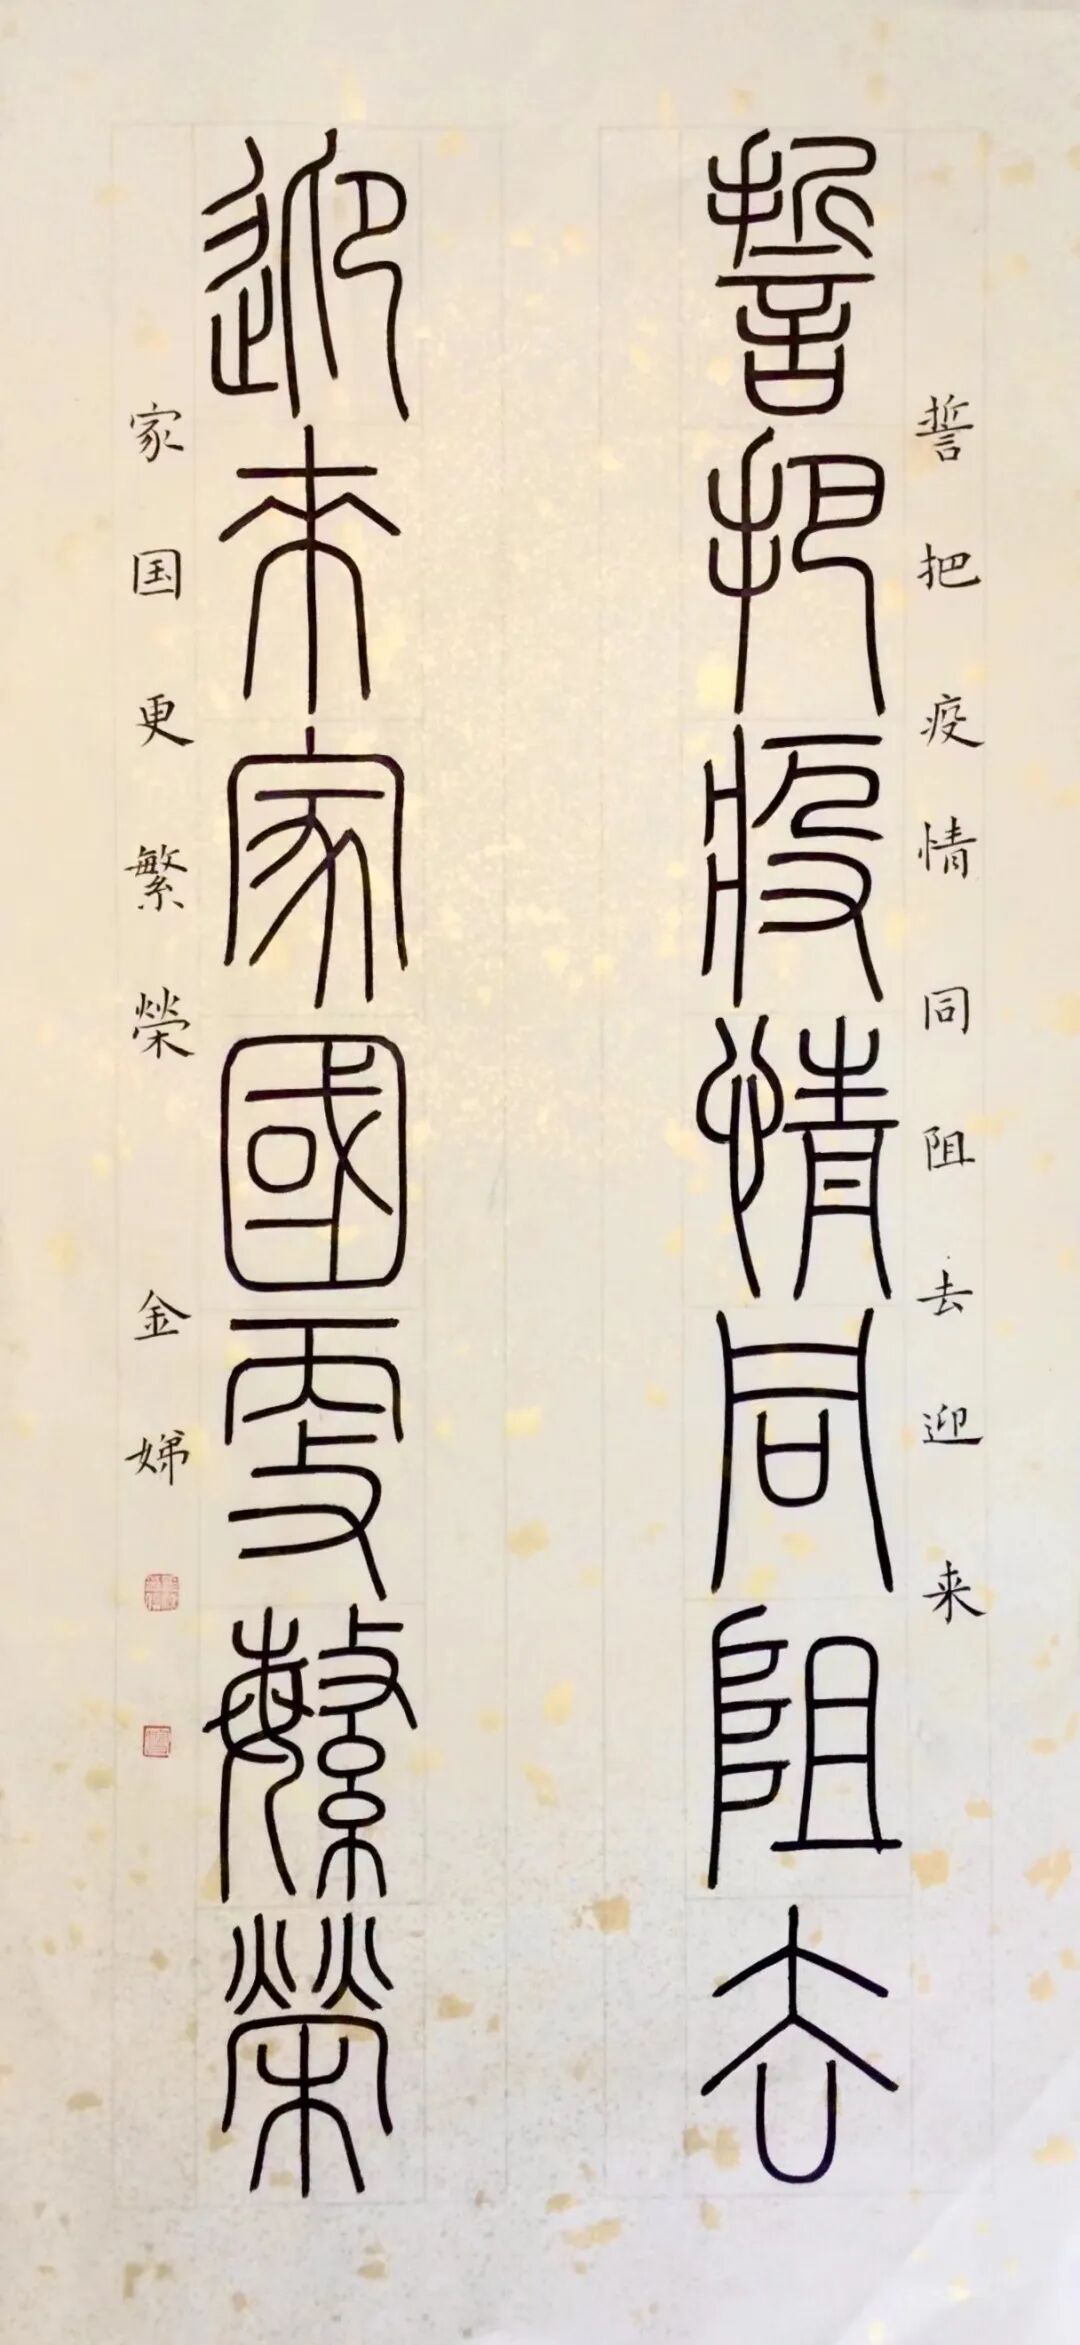 誓把疫情同阻去
迎来家國更繁榮
誓把疫情同阻去迎来
家国更繁榮 金娣